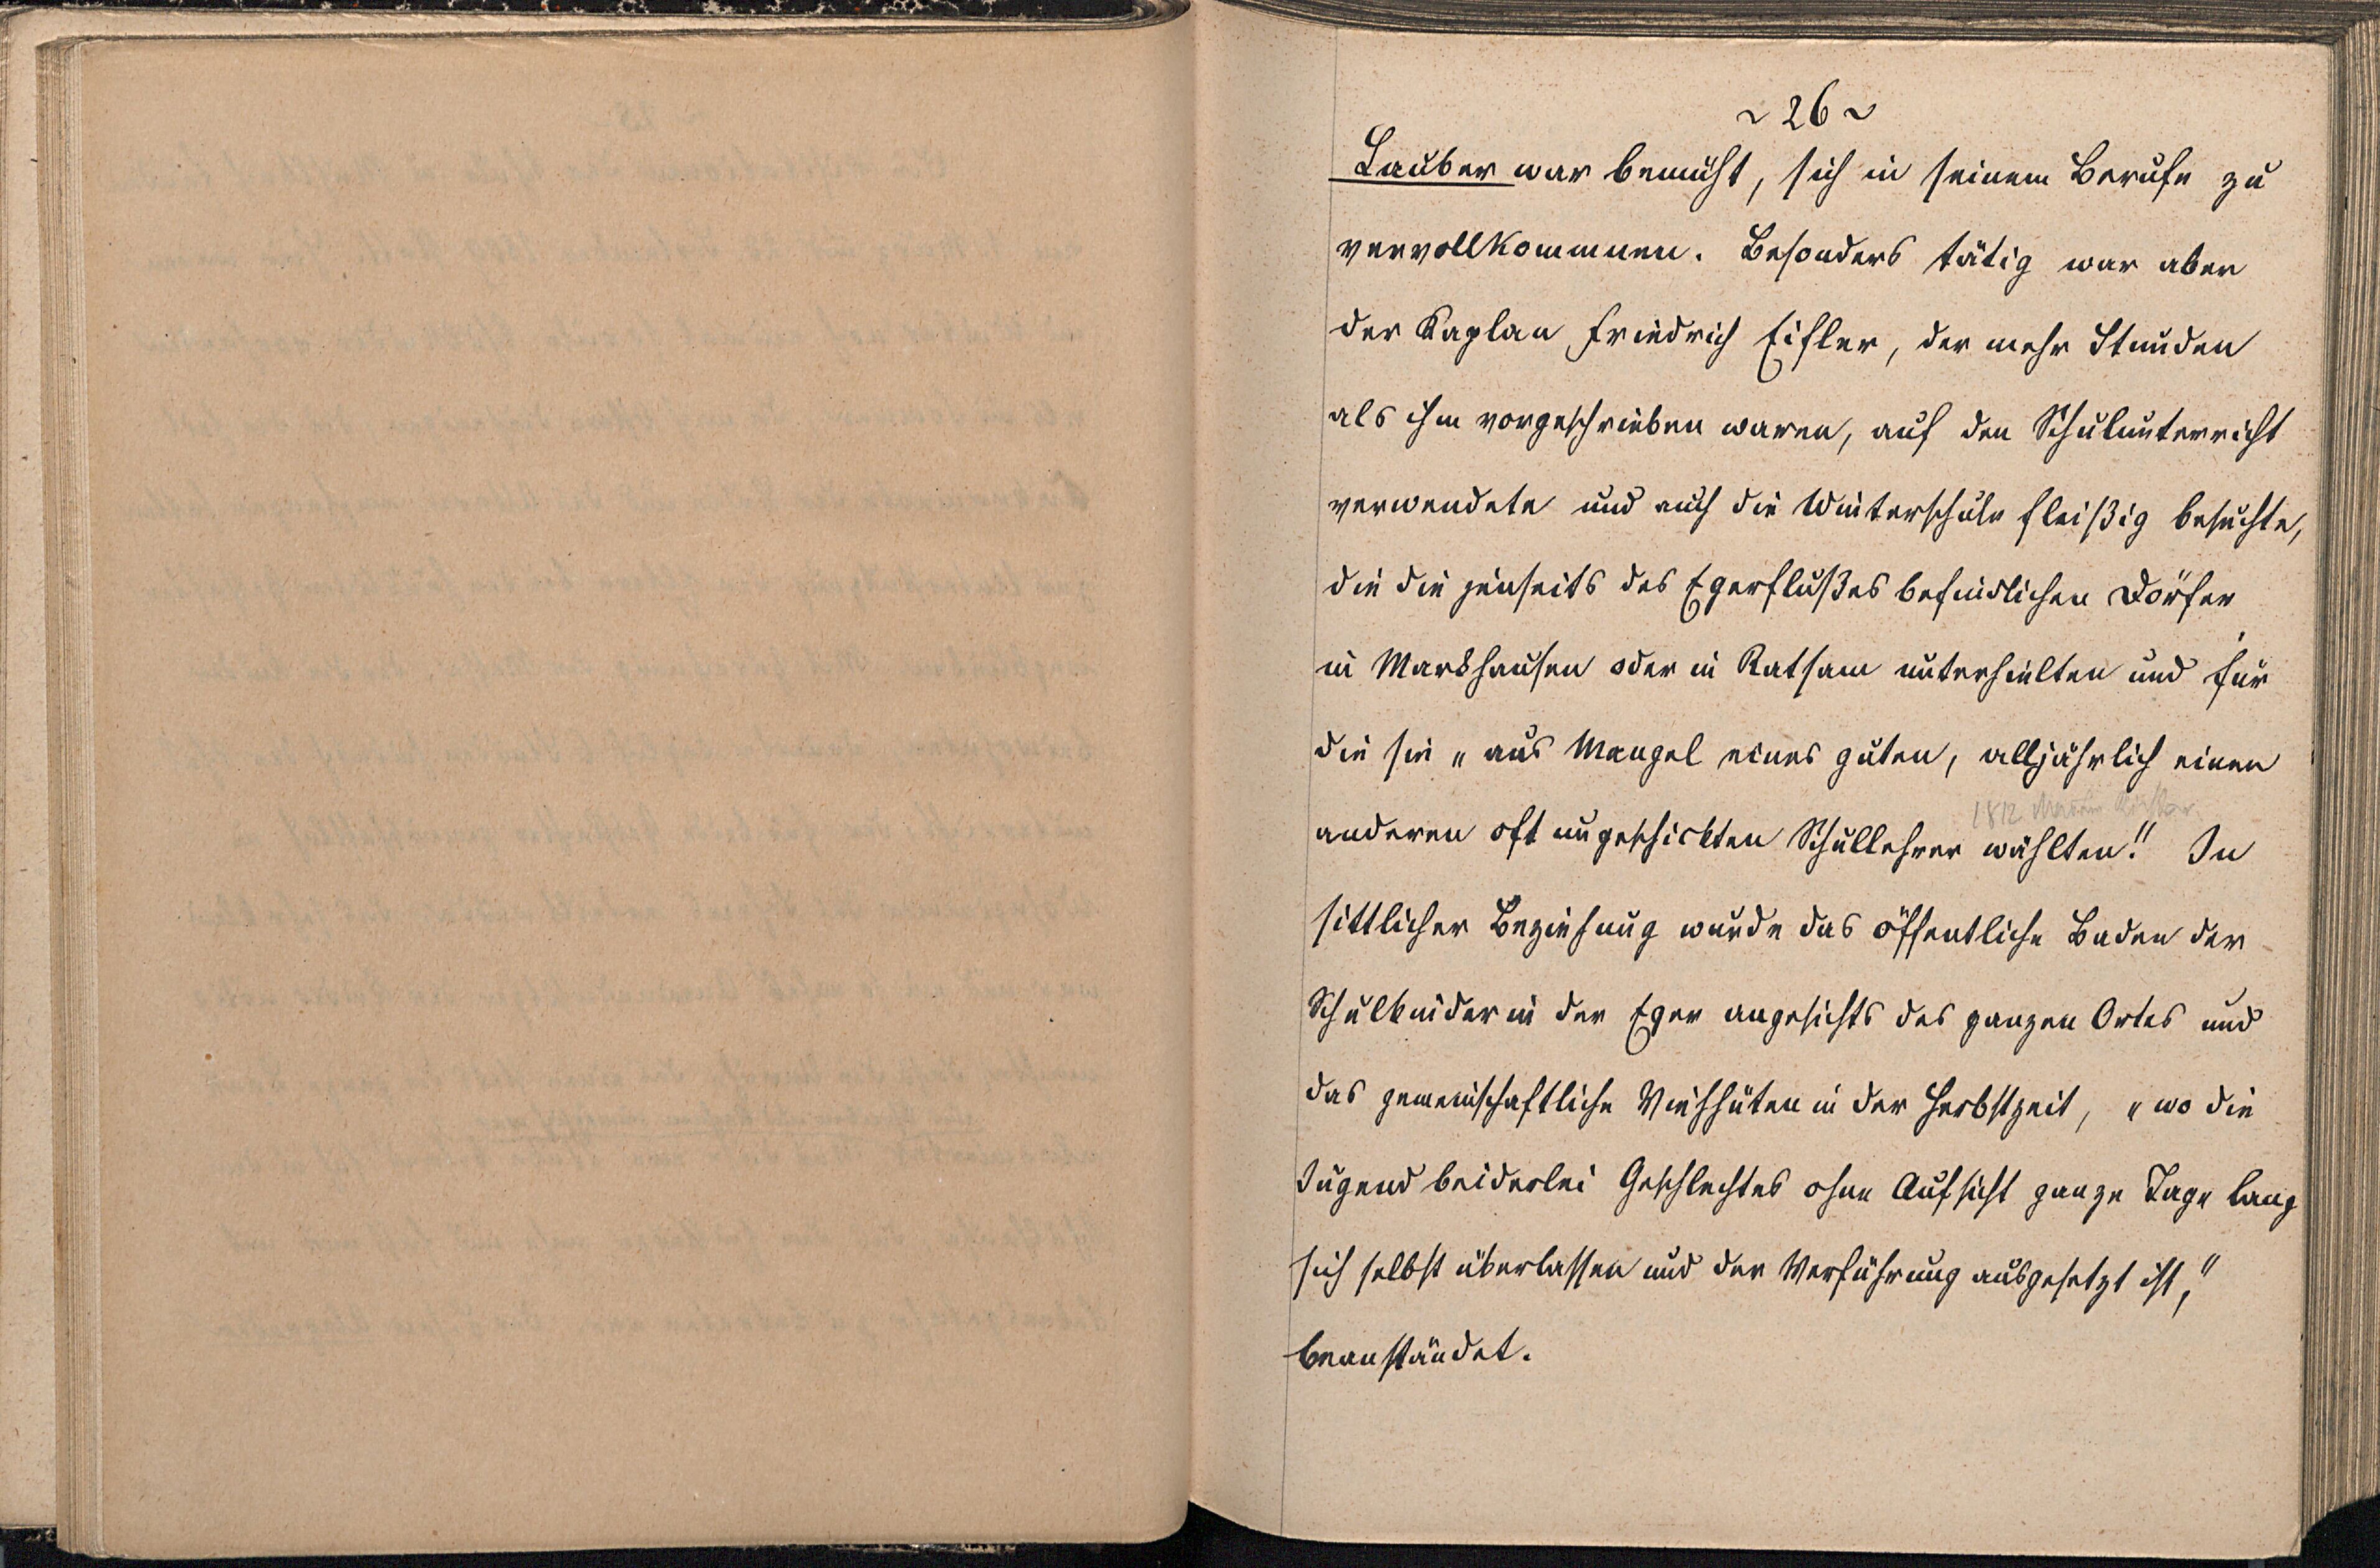 ~ 26 ~
Lauber war bemüht, sich in seinem Berufe zu
vervollkommnen. Besonders tätig war aber
der Kaplan Friedrich Eißler, der mehr Stunden
als ihm vorgeschrieben waren, auf den Schulunterricht
verwendete und auch die Winterschule fleißig besuchte,
die die jenseits des Egerflußes befindlichen Dörfer
in Markhausen oder in Ratsam unterhielten und für
die sie „aus Mangel eines guten, alljährlich einen
1812
anderen oft ungeschickten Schullehrer wählten." In
sittlicher Beziehung wurde das öffentliche Baden der
Schulkinder in der Eger angesichts des ganzen Ortes und
das gemeinschaftliche Viehhüten in der Herbstzeit, „wo die
Jugend beiderlei Geschlechtes ohne Aufsicht ganze Tage lang
sich selbst überlassen und der Verführung ausgesetzt ist,"
beanständet.